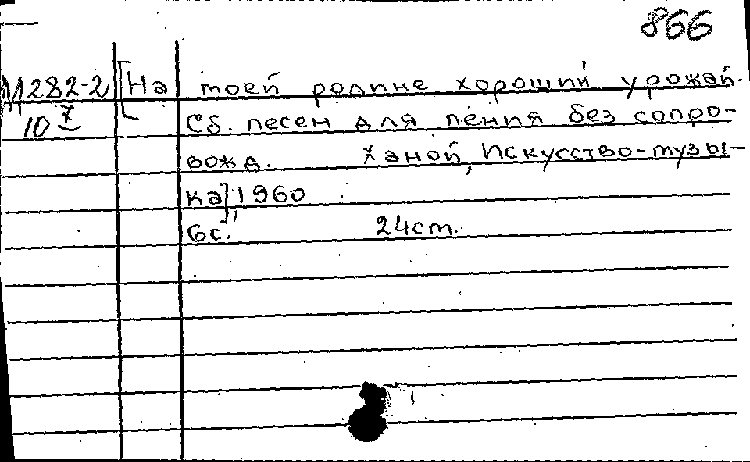 866
М282-2 [На моей родине хороший урожай.
10 7 Сб. песен для пения без сопро-
вожд. Ханой, Искусство-музы-
ка], 1960
6с. 24см.